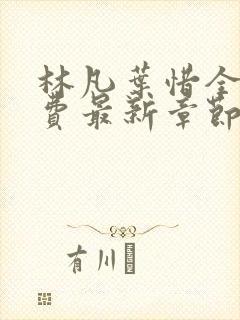 林凡葉惜全
費最新章節
有川